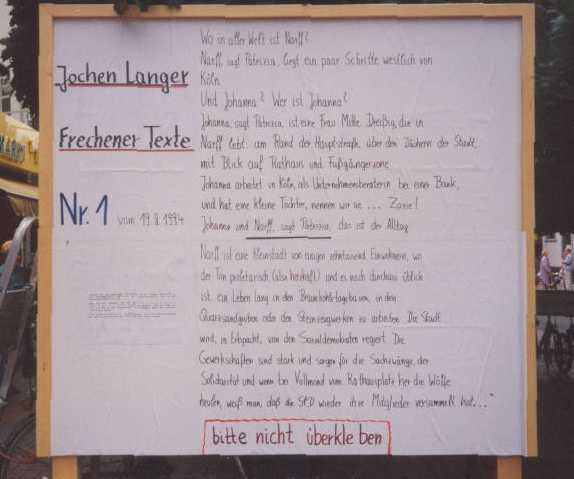 Jochen Langer
Frechener Texte
Nr. 1 vom 19.8.1994
Wo in aller Welt ist Narff?
Narff, sagt Patrizia, liegt ein paar Schritte westlich von
Köln.
Und Johanna? Wer ist Johanna?
Johanna, sagt Patrizia, ist eine Frau Mitte Dreißig, die in
Narff lebt: am Rand der Hauptstraße, über den Dächern der Stadt,
mit Blick auf Rathaus und Fußgängerzone.
Johanna arbeitet in Köln, als Unternehmensberaterin bei einer Bank,
und hat eine kleine Tochter, nennen wir sie ... Zasie!
Johanna und Narff, sagt Patrizia, das ist der Alltag.
Narff ist eine Kleinstadt von einigen zehntausend Einwohnern, wo
der Ton proletarisch (also herzhaft) und es noch durchaus üblich
ist ein Leben lang in den Braunkohletagebauen, in den
Quarzsandgruben oder den Steinzeugwerken zu arbeiten. Die Stadt
wird, in Erbpacht, von den Sozialdemokraten regiert. Die
Gewerkschaften sind stark und sorgen für die Sachzwänge, der
Solidarität und wenn bei Vollmond vom Rathausplatz her die Wölfe
heulen, weiß man, daß die SPD wieder ihre Mitglieder versammelt hat..."
bitte nicht überkleben